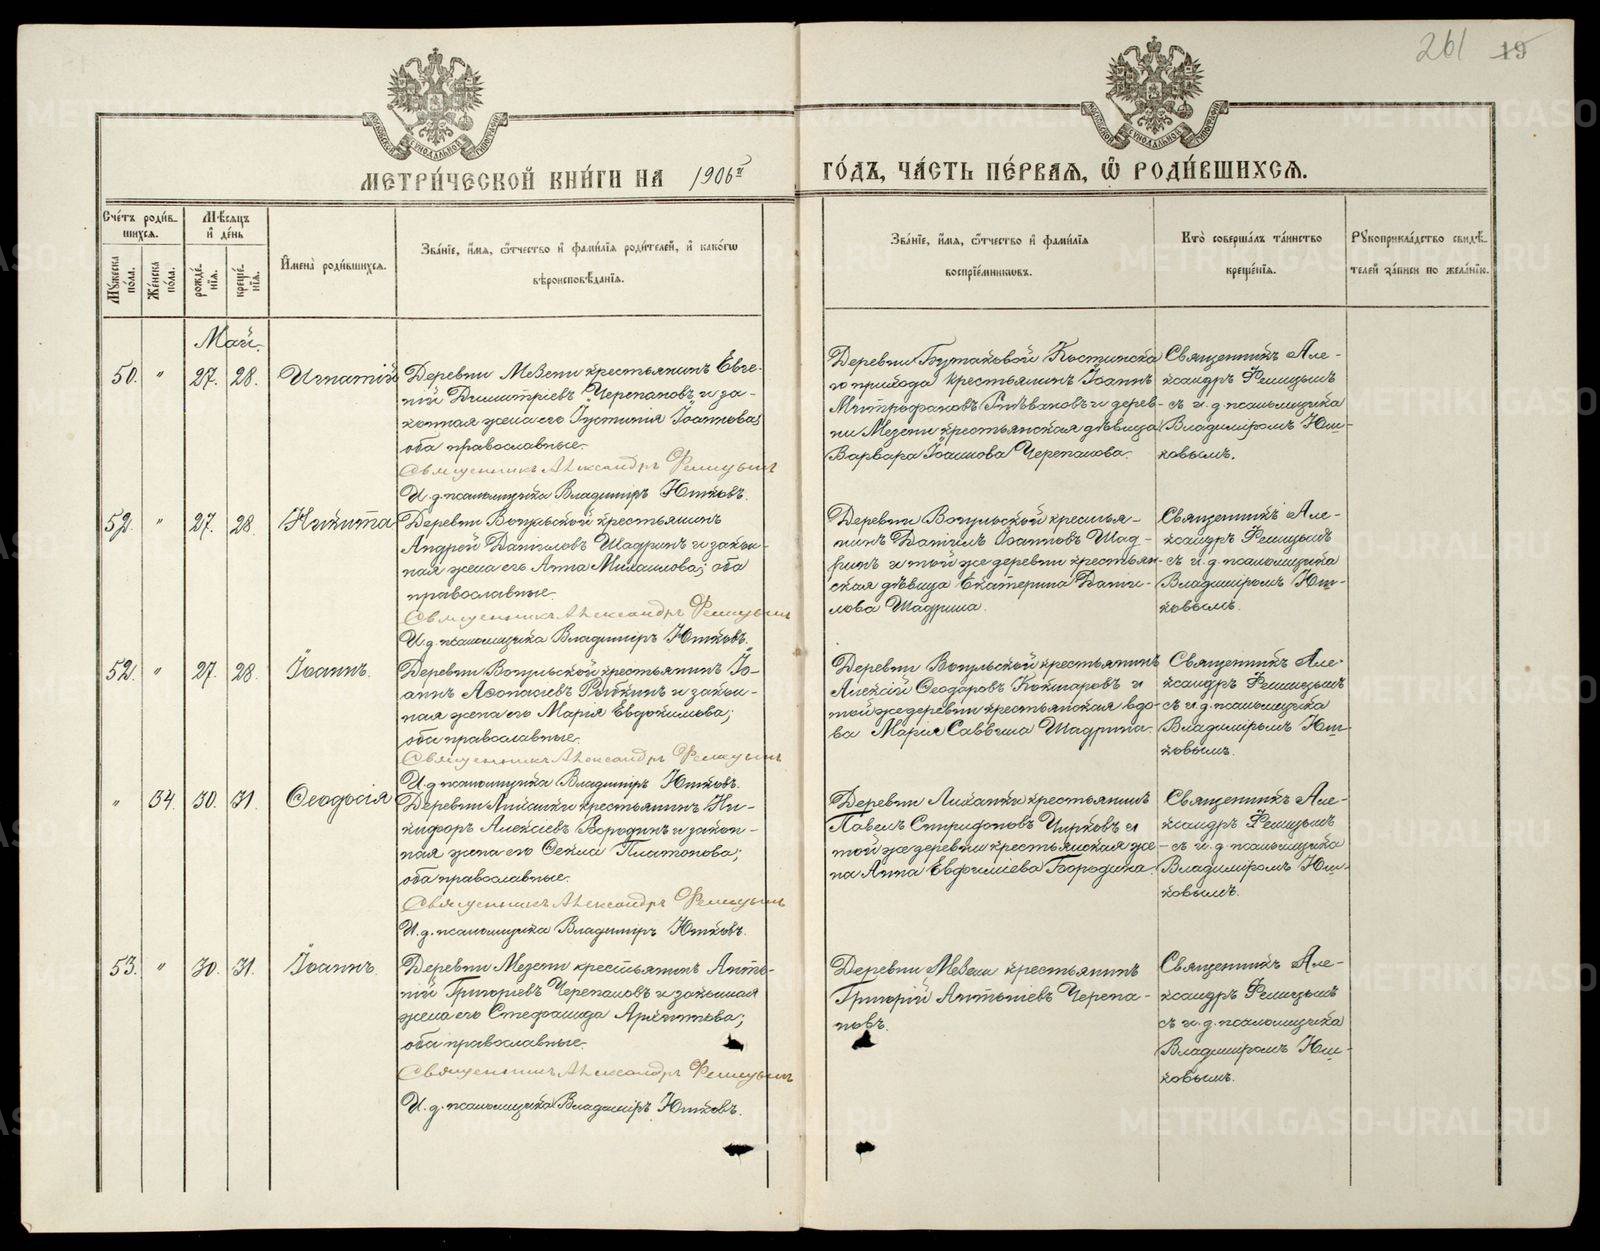 261 19
МЕТРИ́ЧЕСКОЙ КНИ́ГИ НА 1906й ГО́ДЪ, ЧА́СТЬ ПЕ́РВАЯ, Ѿ РОДИ́ВШИХСЯ.
Сче́тъ роди́в-
шихся.
Му́жеска по́ла.
Же́нска по́ла.
Мѣ́сяцъ
и҆ де́нь
рожде́-
нїѧ.
креще́-
нїѧ.
И҆мена̀ роди́вшихся.
Зва́нїе, и҆́мѧ, ѻ҆́тчество и҆ фами́лїѧ роди́телей, и҆ како́гѡ
вѣроисповѣ́данїѧ.
Зва́нїе, и҆́мѧ, ѻ҆́тчество и҆ фами́лїѧ
воспрїе́мниковъ.
Кто̀ соверша́лъ та́инство
креще́нїѧ.
Рꙋкоприкла́дство свидѣ́-
телей за́писи по жела́нїю.
Май.
50. " 27. 28. Игнатій
Деревни Мезени крестьянинъ Евге-
ній Димитріевъ Черепановъ и за-
конная жена его Іустинія Іоаннова;
оба православные.
Священникъ Александръ
И.д. псаломщика Владиміръ Юшковъ.
Деревни Бутаковой Костинска
го прихода крестьянинъ Іоаннъ
Митрофановъ и дерев-
ни Мезени крестьянская дѣвица
Варвара Іоаннова Черепанова.
Священникъ Але-
ксандръ
съ и.д. псаломщика
Владиміромъ Юш-
ковымъ.
52. " 27. 28. Никита
Деревни Вогульской крестьянинъ
Андрей Даніиловъ Шадринъ и закон-
ная жена его Анна Михаилова; оба
православные.
Священникъ Александръ
И.д. псаломщика Владиміръ Юшковъ.
Деревни Вогульской крестья-
нинъ Даніилъ Іоанновъ Шад-
ринъ и той же деревни крестьян-
ская дѣвица Екатерина Дани-
лова Шадрина.
Священникъ Але-
ксандръ
съ и.д. псаломщика
Владиміромъ Юш-
ковымъ.
52. " 27. 28. Іоаннъ.
Деревни Вогульской крестьянинъ Іо-
аннъ Аѳонасіевъ Рыбкинъ и закон-
ная жена его Марія Евдокимова;
оба православные.
Священникъ Александръ
И.д. псаломщика Владиміръ Юшковъ.
Деревни Вогульской крестьянинъ
Алексій Ѳеодоровъ Кокшаровъ и
той же деревни крестьянская вдо-
ва Марія Саввина Шадрина.
Священникъ Але-
ксандръ
съ и.д. псаломщика
Владиміромъ Юш-
ковымъ.
" 34. 30. 31. Ѳеодосія
Деревни крестьянинъ Ни-
кифоръ Алексіевъ Бородинъ и закон-
ная жена его Ѳекла Платонова;
оба православные.
Священникъ Александръ
И.д. псаломщика Владиміръ Юшковъ.
Деревни крестьянинъ
Павелъ Спиридоновъ Чирковъ и
той же деревни крестьянская же-
на Анна Евфиміева Бородина.
Священникъ Але-
ксандръ
съ и.д. псаломщика
Владиміромъ Юш-
ковымъ.
53. " 30. 31. Іоаннъ.
Деревни Мезени крестьянинъ Анто-
ній Григоріевъ Черепановъ и законная
жена его Стефанида Архипова;
оба православные.
Священникъ Александръ
И.д. псаломщика Владиміръ Юшковъ.
Деревни Мезени крестьянинъ
Григорій Антоніевъ Черепа-
новъ.
Священникъ Але-
ксандръ
съ и.д. псаломщика
Владиміромъ Юш-
ковымъ.
METRIKI.GASO-URAL.RU